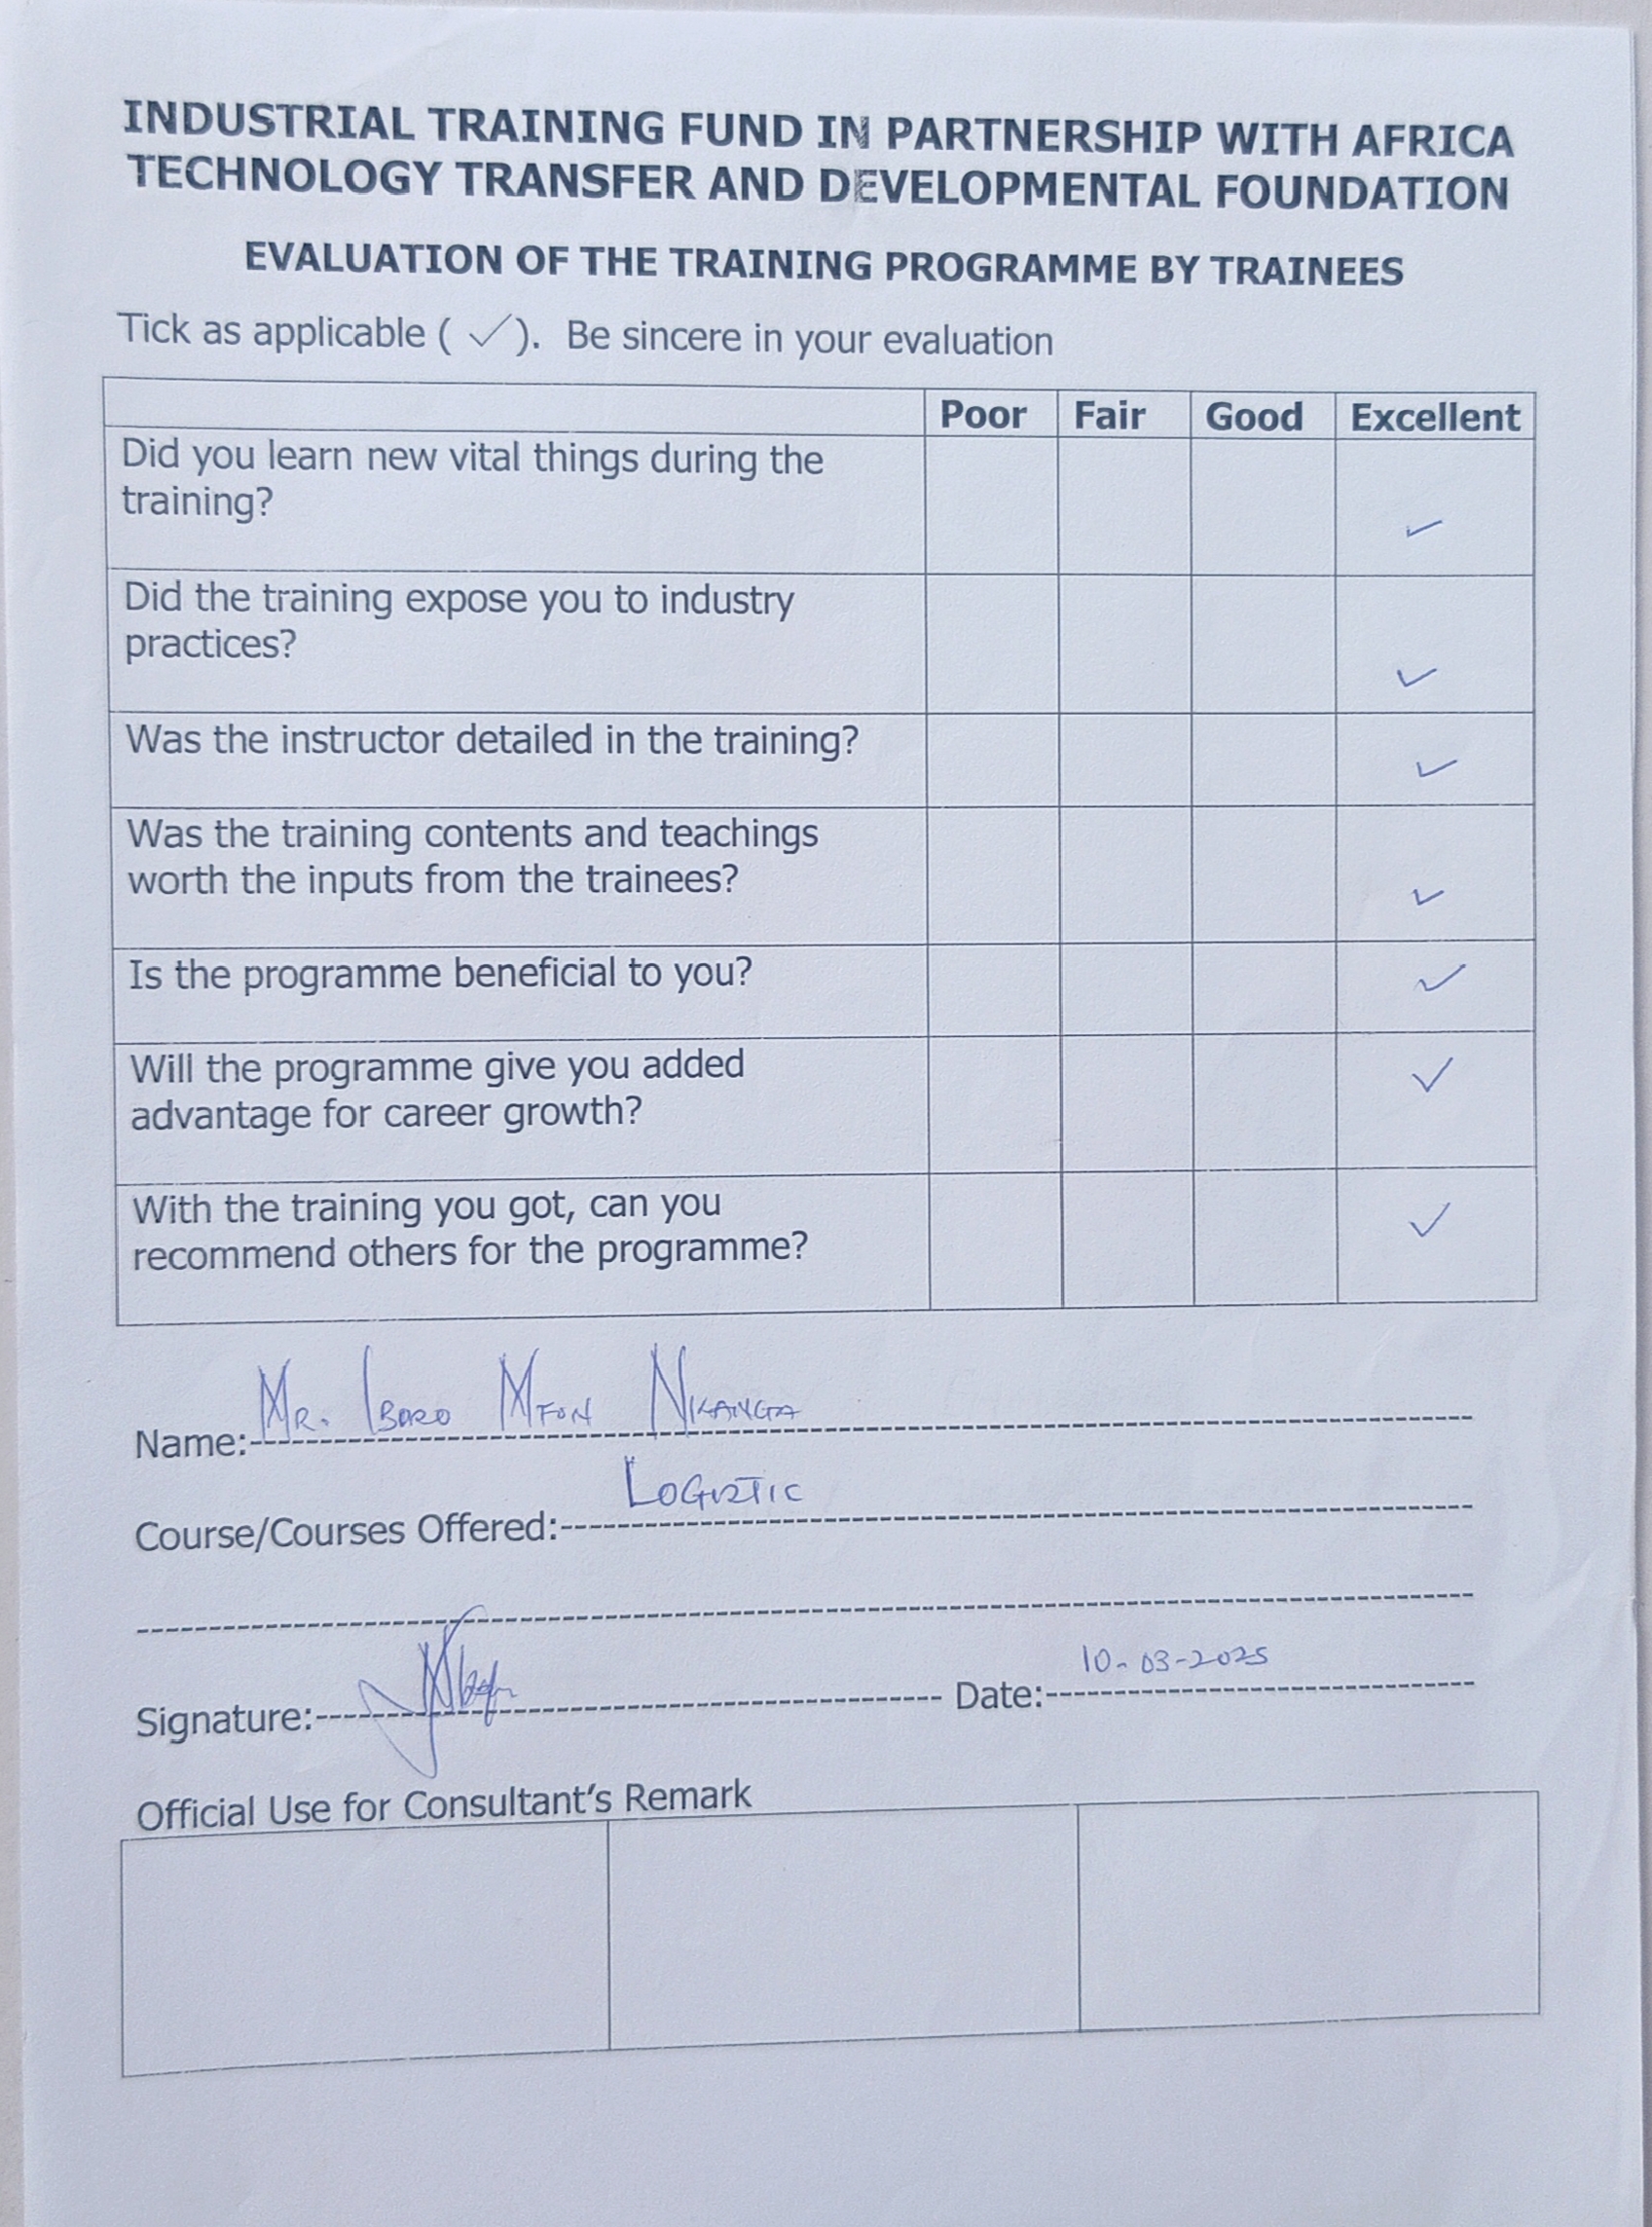 INDUSTRIAL TRAINING FUND IN PARTNERSHIP WITH AFRICA
TECHNOLOGY TRANSFER AND DEVELOPMENTAL FOUNDATION
EVALUATION OF THE TRAINING PROGRAMME BY TRAINEES
Tick as applicable ( ✓). Be sincere in your evaluation
Poor Fair Good Excellent
Did you learn new vital things during the
training? ✓
Did the training expose you to industry
practices? ✓
Was the instructor detailed in the training? ✓
Was the training contents and teachings
worth the inputs from the trainees? ✓
Is the programme beneficial to you? ✓
Will the programme give you added ✓
advantage for career growth?
With the training you got, can you ✓
recommend others for the programme?
Name: MR. IBORO MFON NKANGA
Course/Courses Offered: LOGISTIC
Signature: Date: 10-03-2025
Official Use for Consultant's Remark